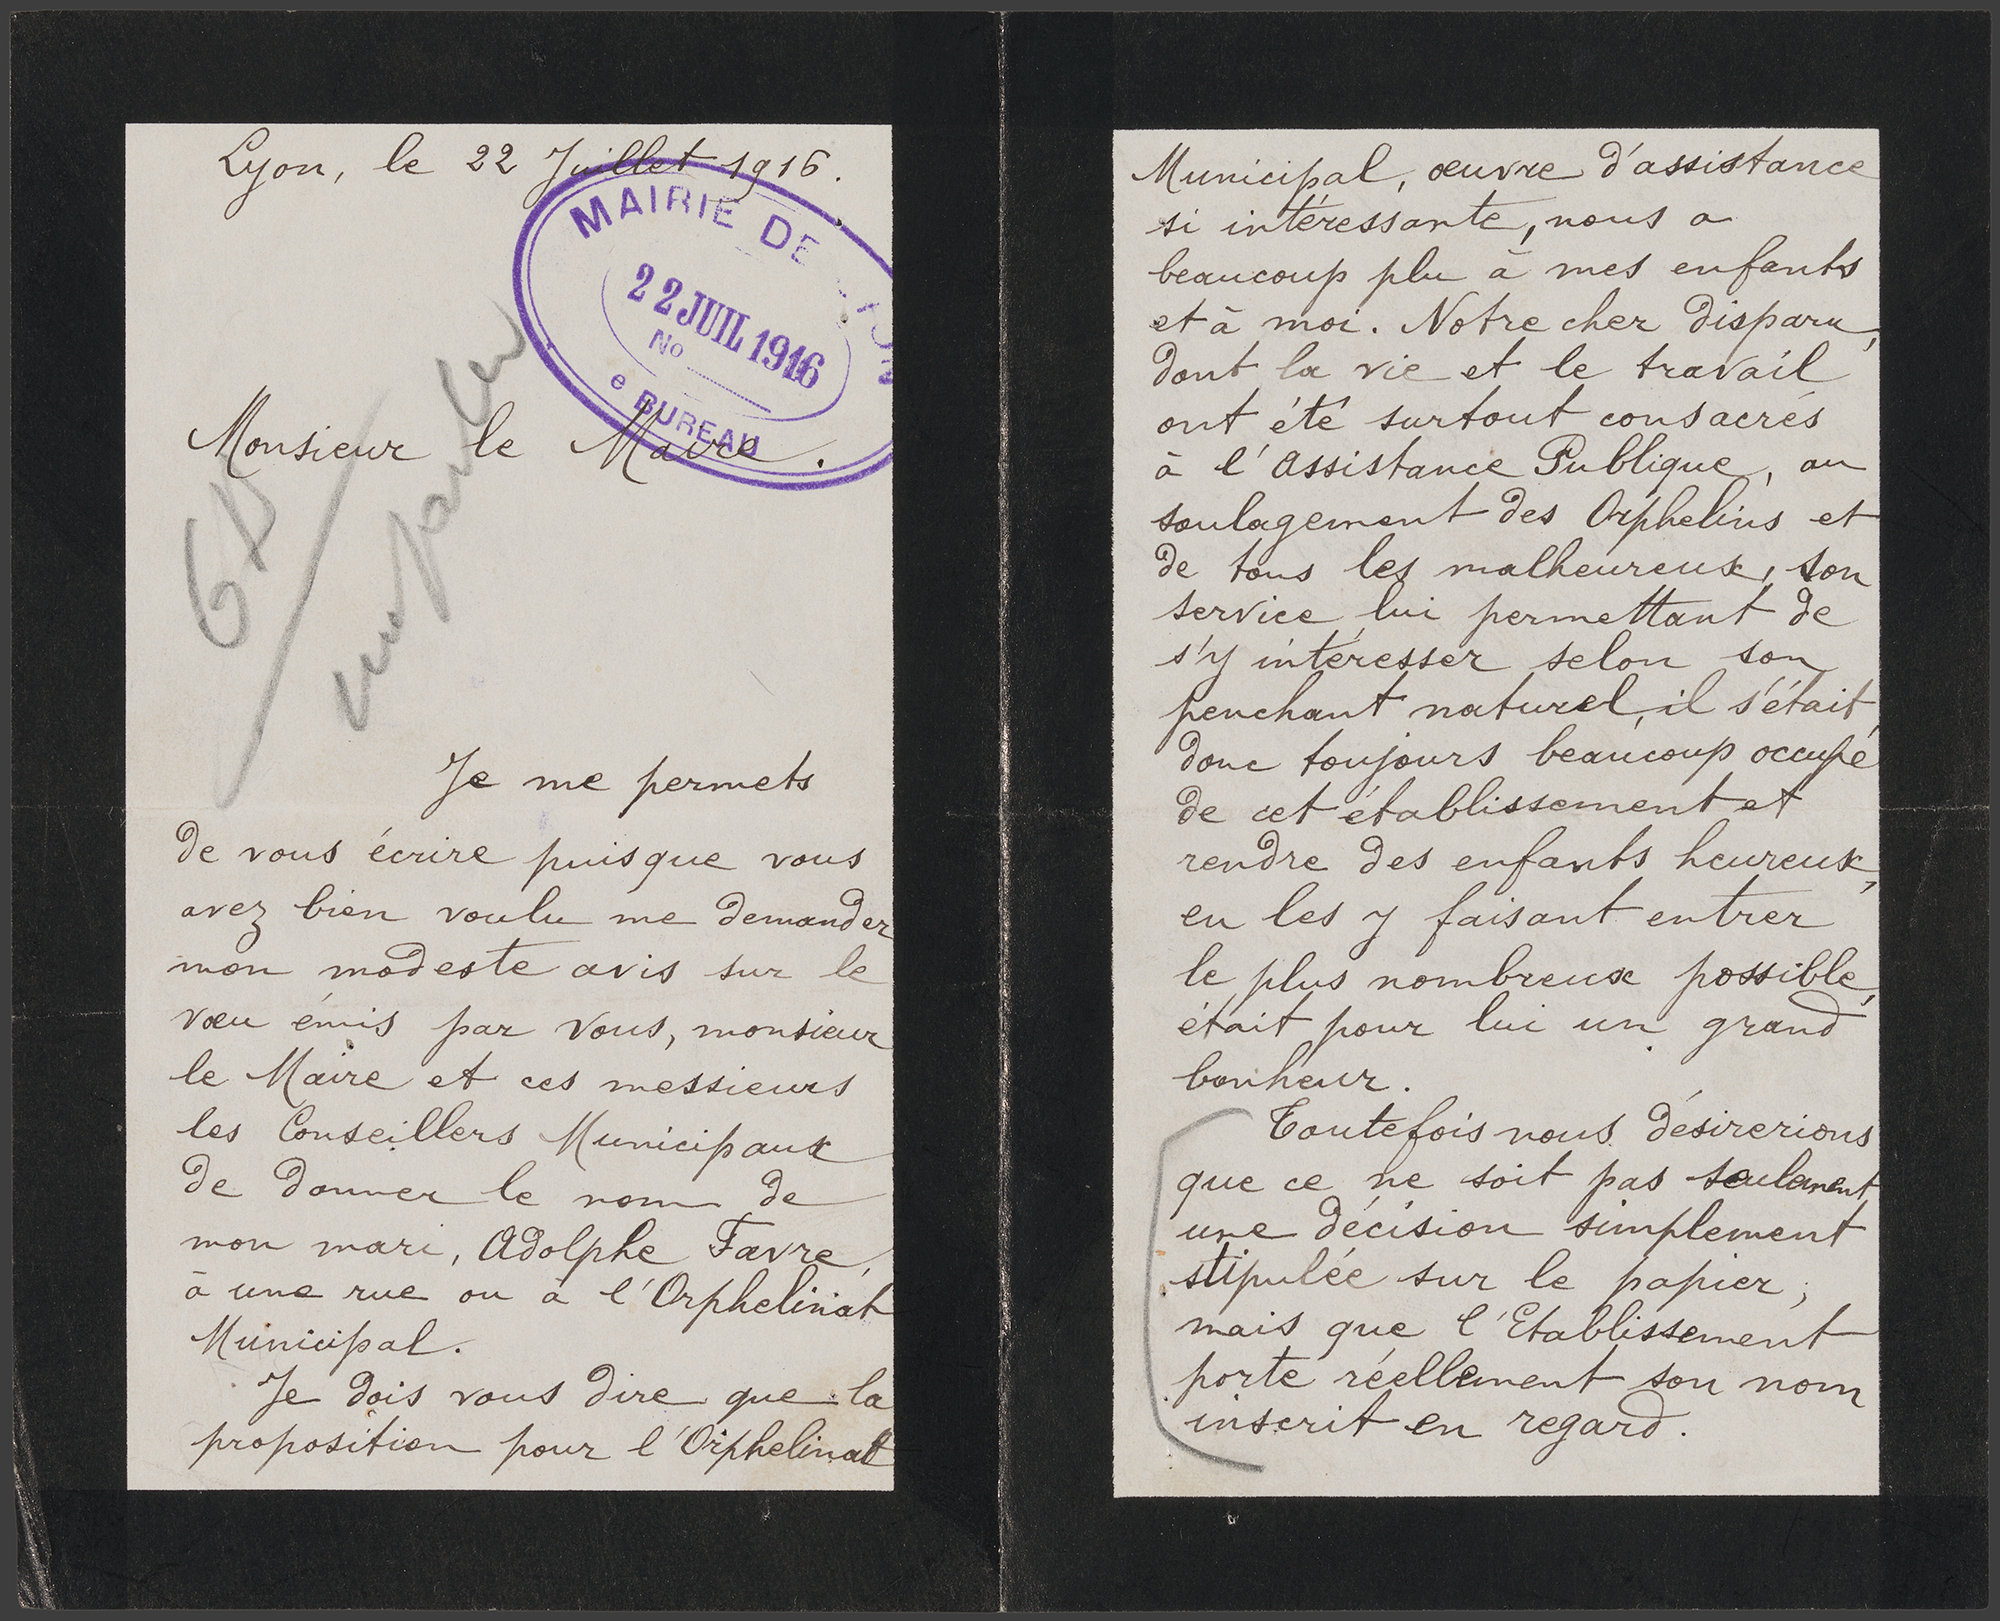 Lyon, le 22 Juillet 1916.
MAIRIE DE LYON
22 JUIL 1916
No
e BUREAU
Monsieur le Maire.
Je me permets
de vous écrire puisque vous
avez bien voulu me demander
mon modeste avis sur le
vœu émis par vous, monsieur
le Maire et ces messieurs
les Conseillers Municipaux
de donner le nom de
mon mari, Adolphe Favre,
à une rue ou à l'Orphelinat
Municipal.
Je dois vous dire que la
proposition pour l'Orphelinat
Municipal, œuvre d'assistance
si intéressante, nous a
beaucoup plu à mes enfants
et à moi. Notre cher disparu,
dont la vie et le travail
ont été surtout consacrés
à l'Assistance Publique, au
soulagement des Orphelins et
de tous les malheureux, son
service lui permettant de
s'y intéresser selon son
penchant naturel, il s'était
donc toujours beaucoup occupé
de cet établissement et
rendre des enfants heureux,
en les y faisant entrer
le plus nombreux possible,
était pour lui un grand
bonheur.
Toutefois nous désirerions
que ce ne soit pas seulement
une décision simplement
stipulée sur le papier,
mais que l'Etablissement
porte réellement son nom
inscrit en regard.